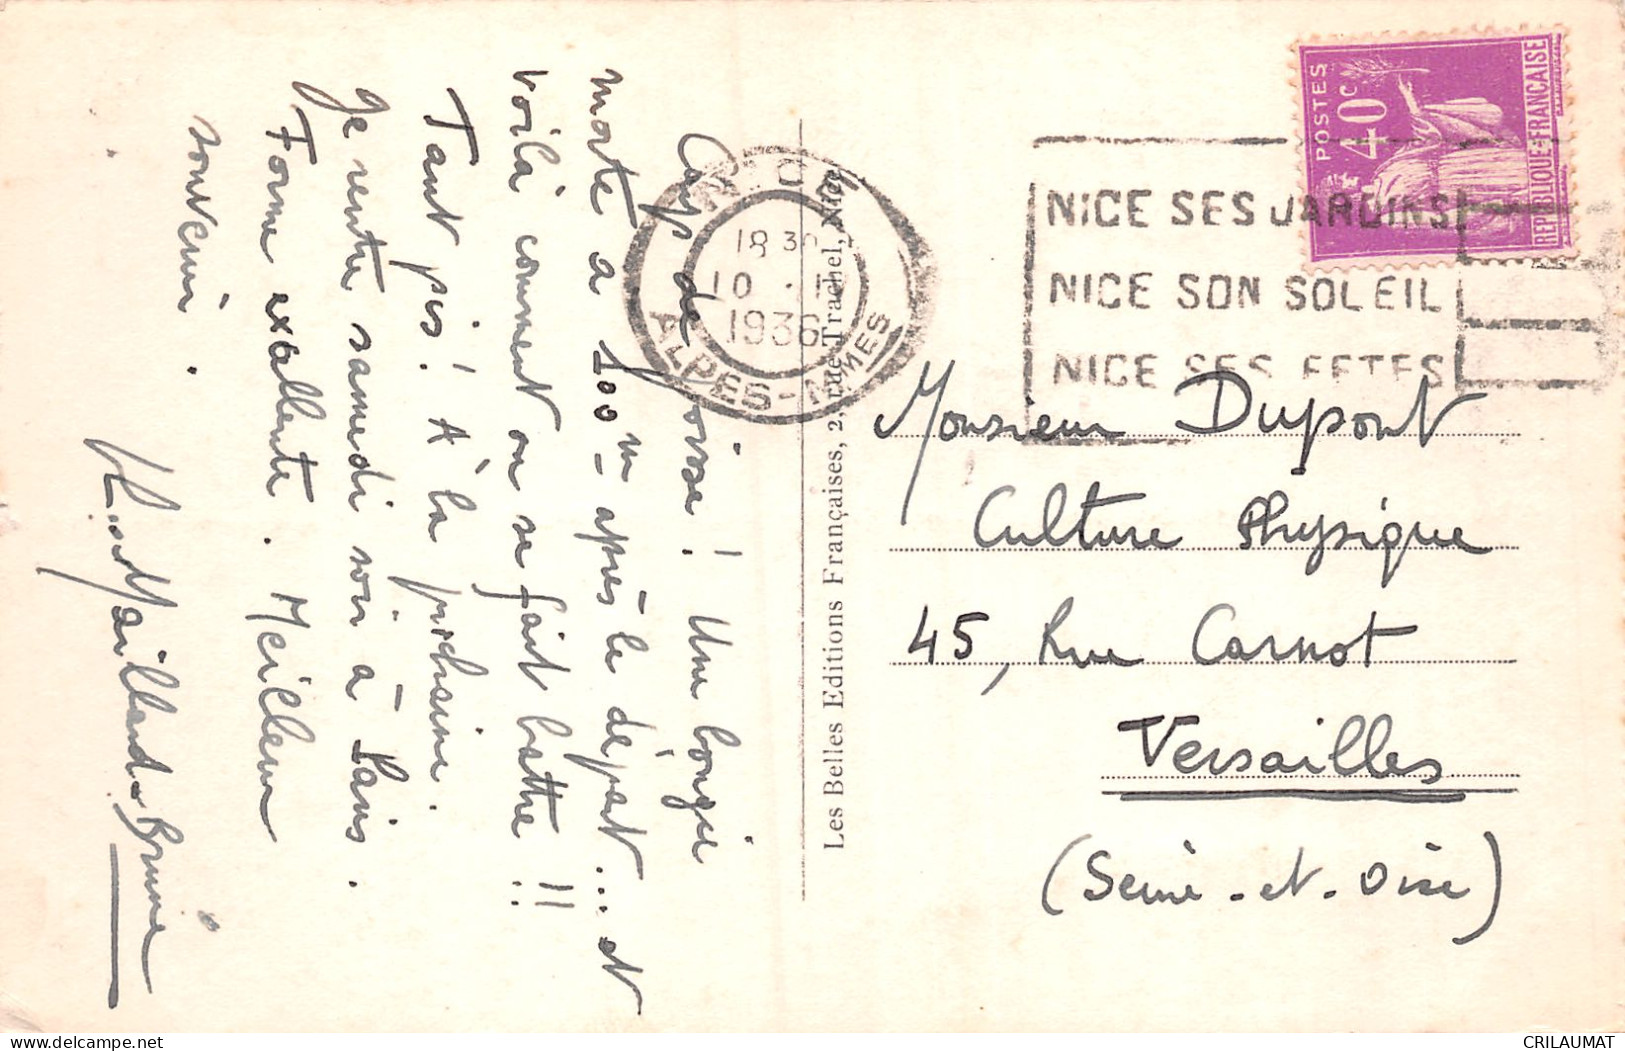 Coup de poisse ! Une bougie
morte à 500 m après le départ... et
voilà comment on se fait battre !!
Tant pis ! A la prochaine.
Je rentre samedi soir à Paris.
Forme excellente. Meilleur
souvenir.
Maillard-Brune
Les Belles Editions Françaises, 2, rue Trachel, Nice
NICE
18 30
10
1936
ALPES-MMES
NICE SES JARDINS
NICE SON SOLEIL
NICE SES FETES
POSTES
40c
REPUBLIQUE FRANÇAISE
Monsieur Dupont
Culture Physique
45, Rue Carnot
Versailles
(Seine-et-Oise)
CRILAUMAT